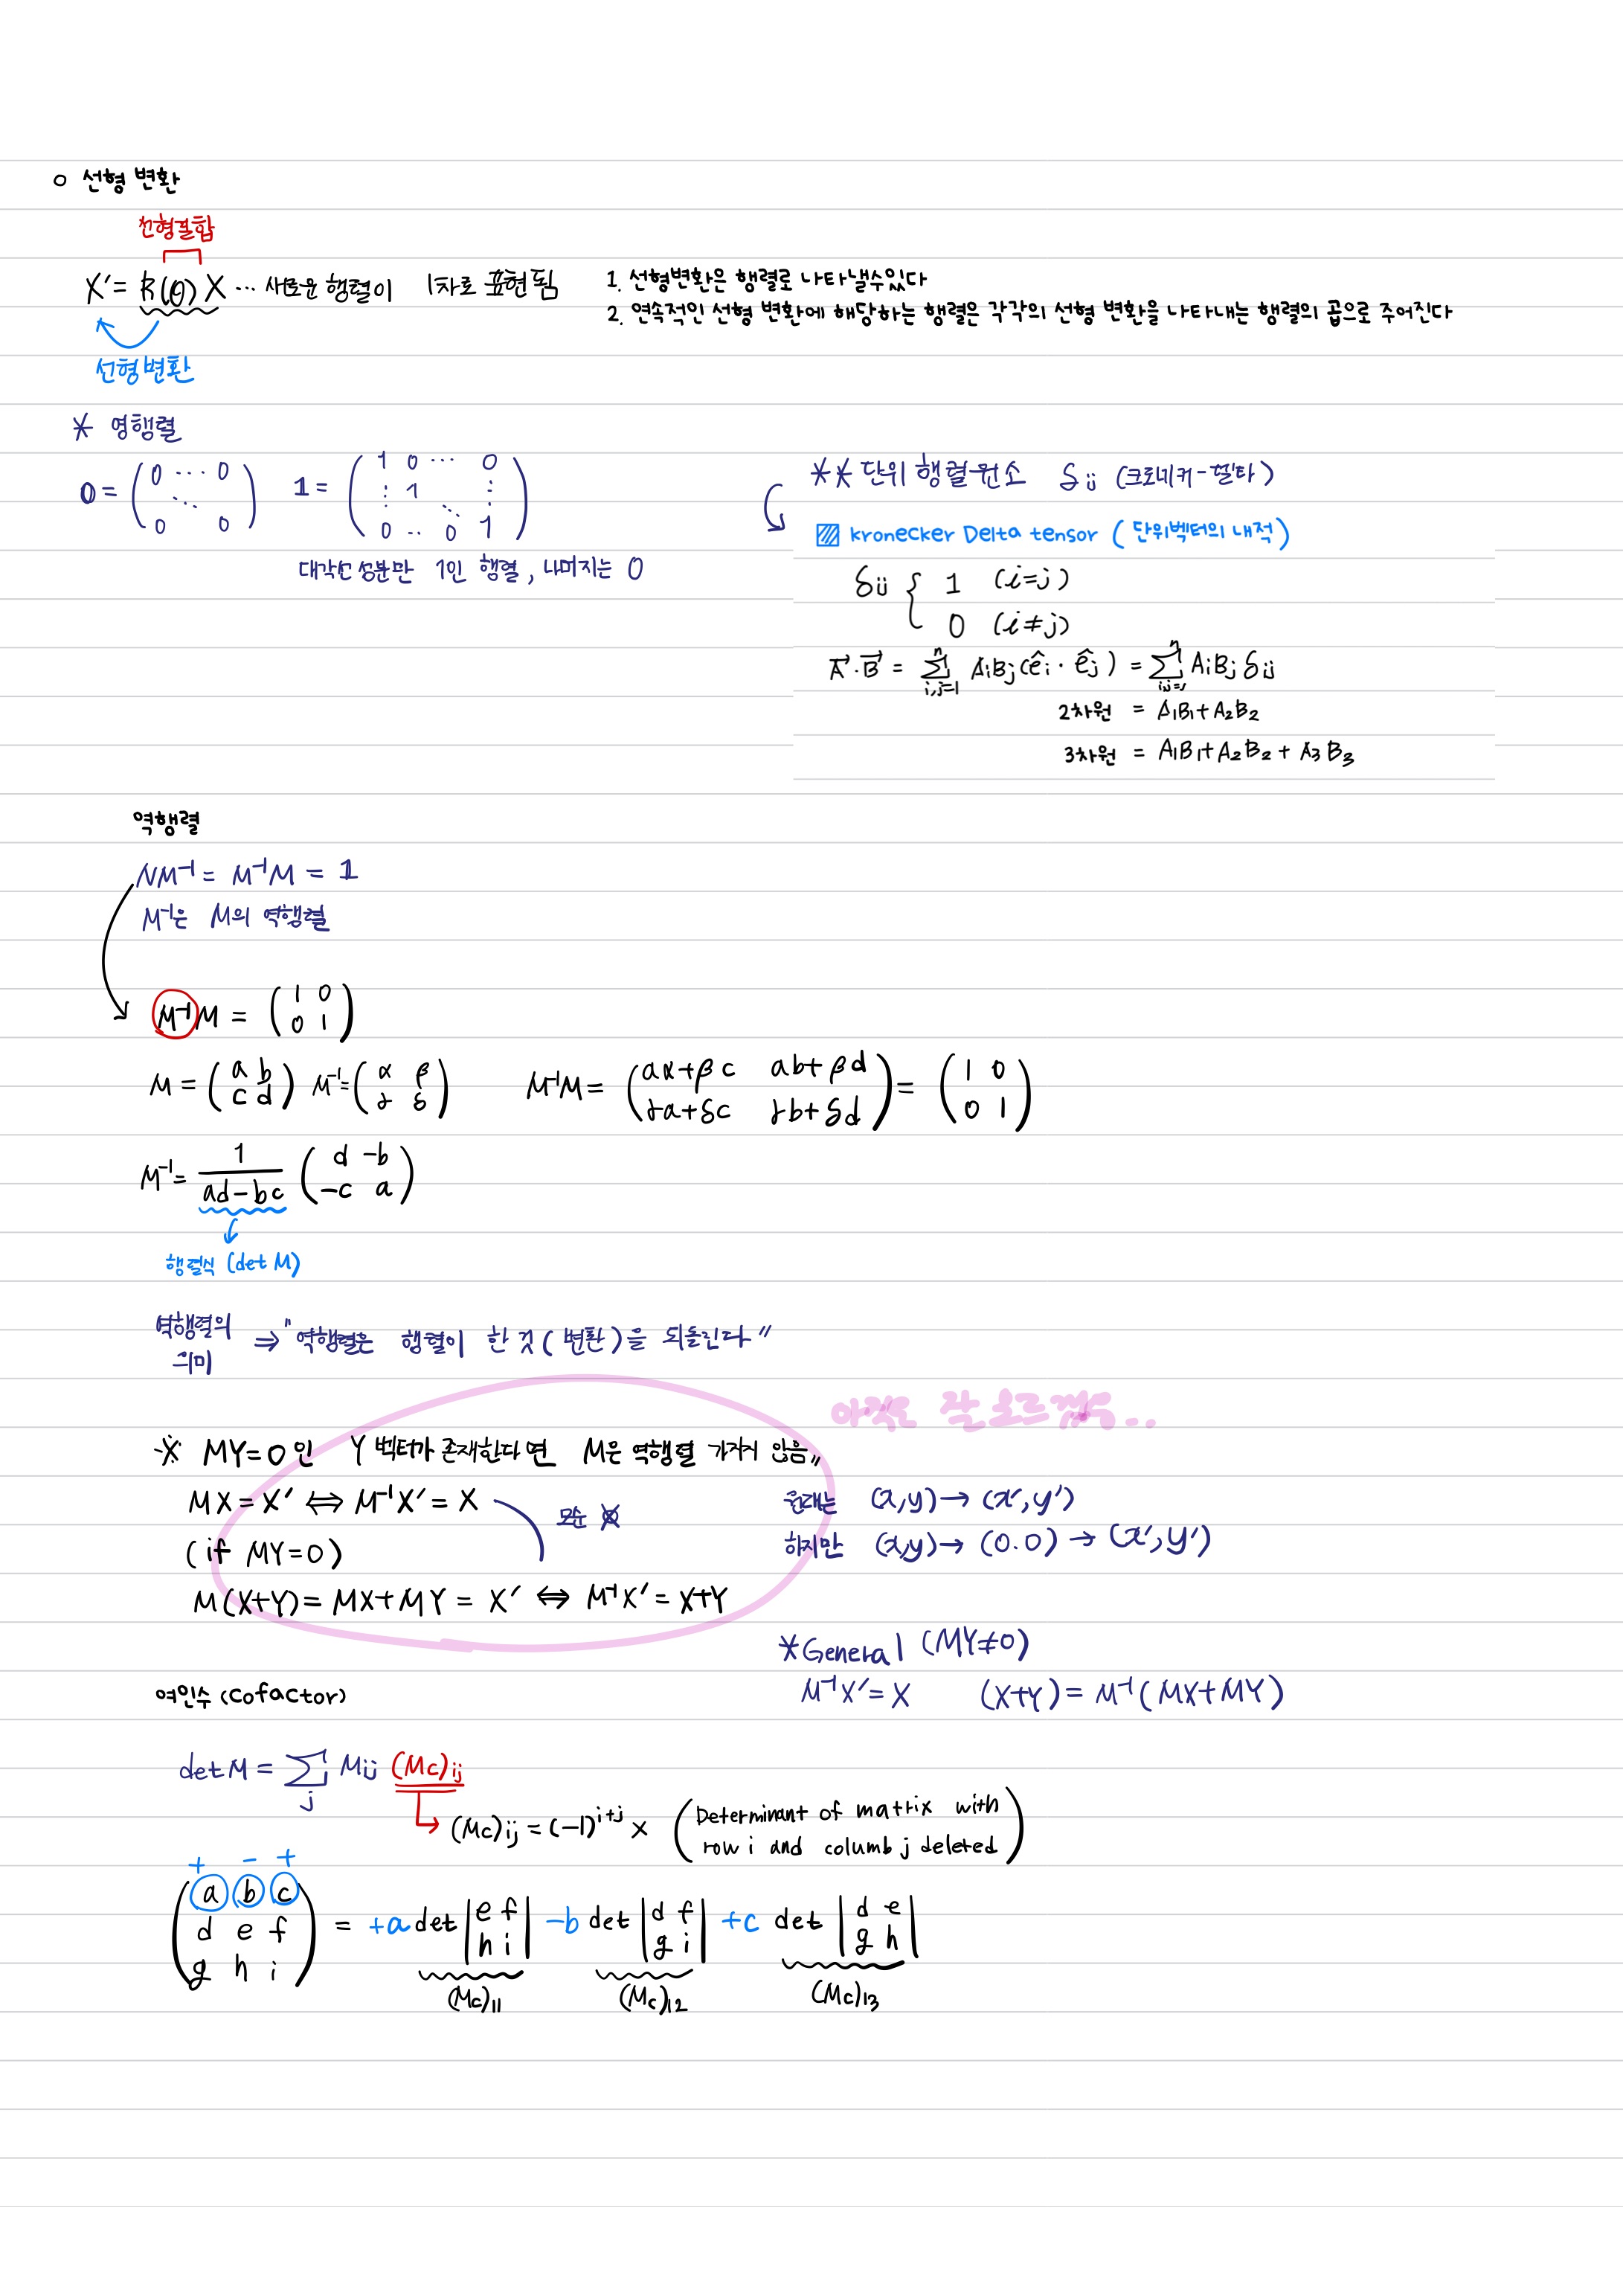 ○ 선형 변환
선형결합
X' = R(θ) X ··· 새로운 행렬이 1차로 표현됨
선형변환
1. 선형변환은 행렬로 나타낼수있다
2. 연속적인 선형 변환에 해당하는 행렬은 각각의 선형 변환을 나타내는 행렬의 곱으로 주어진다
* 영행렬
0 = ( 0 ··· 0 ⋱ 0 0 ) 1 = ( 1 0 ··· 0 ⋮ 1 ⋮ ⋱ 0 ·· 0 1 )
대각선 성분만 1인 행렬, 나머지는 0
** 단위 행렬원소 δij (크로네커-델타)
▨ kronecker Delta tensor (단위벡터의 내적)
δij { 1 (i=j)
0 (i≠j)
A⃗·B⃗ = Σⁿi,j=1 AiBj(êi · êj) = Σⁿi,j=1 AiBjδij
2차원 = A₁B₁+A₂B₂
3차원 = A₁B₁+A₂B₂+A₃B₃
역행렬
MM⁻¹ = M⁻¹M = 1
M⁻¹은 M의 역행렬
M⁻¹M = ( 1 0 0 1 )
M = ( a b c d ) M⁻¹ = ( α β γ δ ) M⁻¹M = ( aα+βc ab+βd γa+δc γb+δd ) = ( 1 0 0 1 )
M⁻¹ = 1/(ad-bc) ( d -b -c a )
행렬식 (det M)
역행렬의 의미 ⇒ "역행렬은 행렬이 한 것(변환)을 되돌린다"
아직은 잘 모르겠음..
※ MY=0인 Y 벡터가 존재한다 면 M은 역행렬 가지지 않음"
MX = X' ⟺ M⁻¹X' = X
모순
(if MY=0)
M(X+Y) = MX+MY = X' ⟺ M⁻¹X' = X+Y
원래는 (x,y) → (x',y')
하지만 (x,y) → (0.0) → (x',y')
*General (MY≠0)
M⁻¹X' = X (X+Y) = M⁻¹(MX+MY)
여인수 (cofactor)
det M = Σj Mij (Mc)ij
(Mc)ij = (-1)^i+j × ( Determinant of matrix with
row i and columb j deleted )
+ - +
( a b c d e f g h i ) = +a det | e f h i | -b det | d f g i | +c det | d e g h |
(Mc)11 (Mc)12 (Mc)13